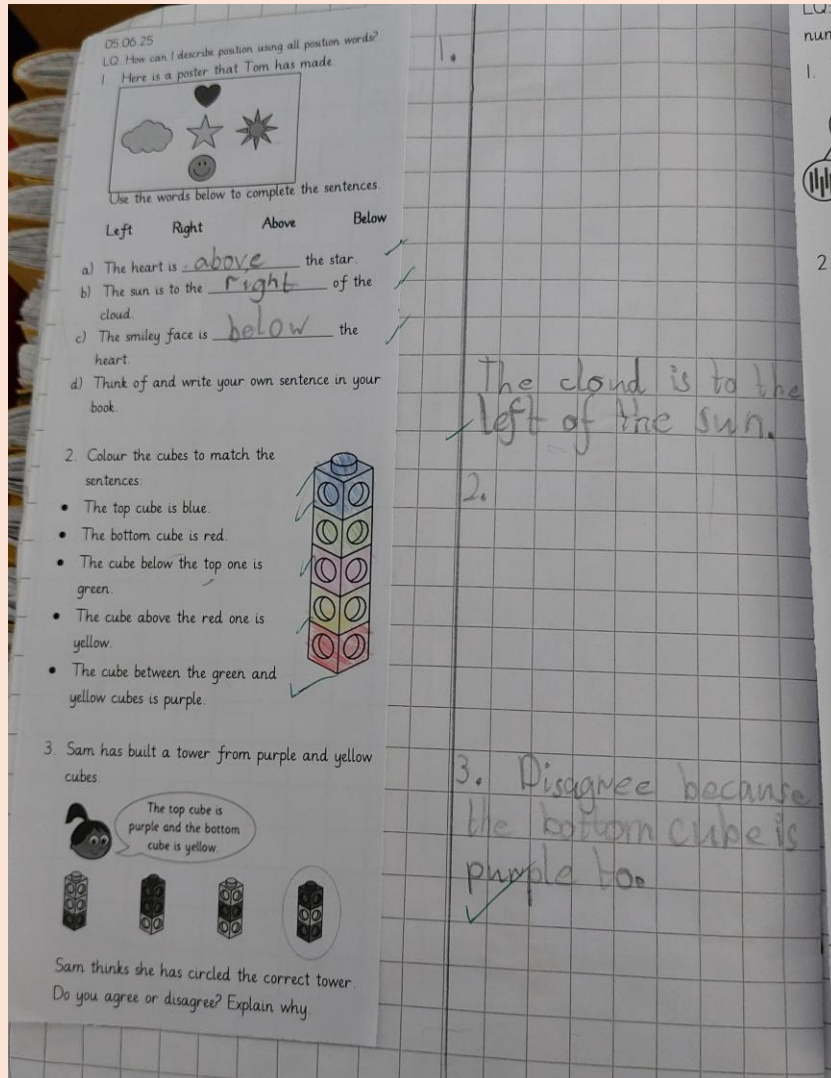 05.06.25
LQ. How can I describe position using all position words?
1. Here is a poster that Tom has made
Use the words below to complete the sentences.
Left Right Above Below
a) The heart is above the star.
b) The sun is to the right of the
cloud.
c) The smiley face is below the
heart.
d) Think of and write your own sentence in your
book.
2. Colour the cubes to match the
sentences:
• The top cube is blue.
• The bottom cube is red.
• The cube below the top one is
green.
• The cube above the red one is
yellow.
• The cube between the green and
yellow cubes is purple.
3. Sam has built a tower from purple and yellow
cubes.
The top cube is
purple and the bottom
cube is yellow.
Sam thinks she has circled the correct tower.
Do you agree or disagree? Explain why.
1.
The cloud is to the
left of the sun.
2.
3. Disagree because
the bottom cube is
purple to.
LQ.
1.
2